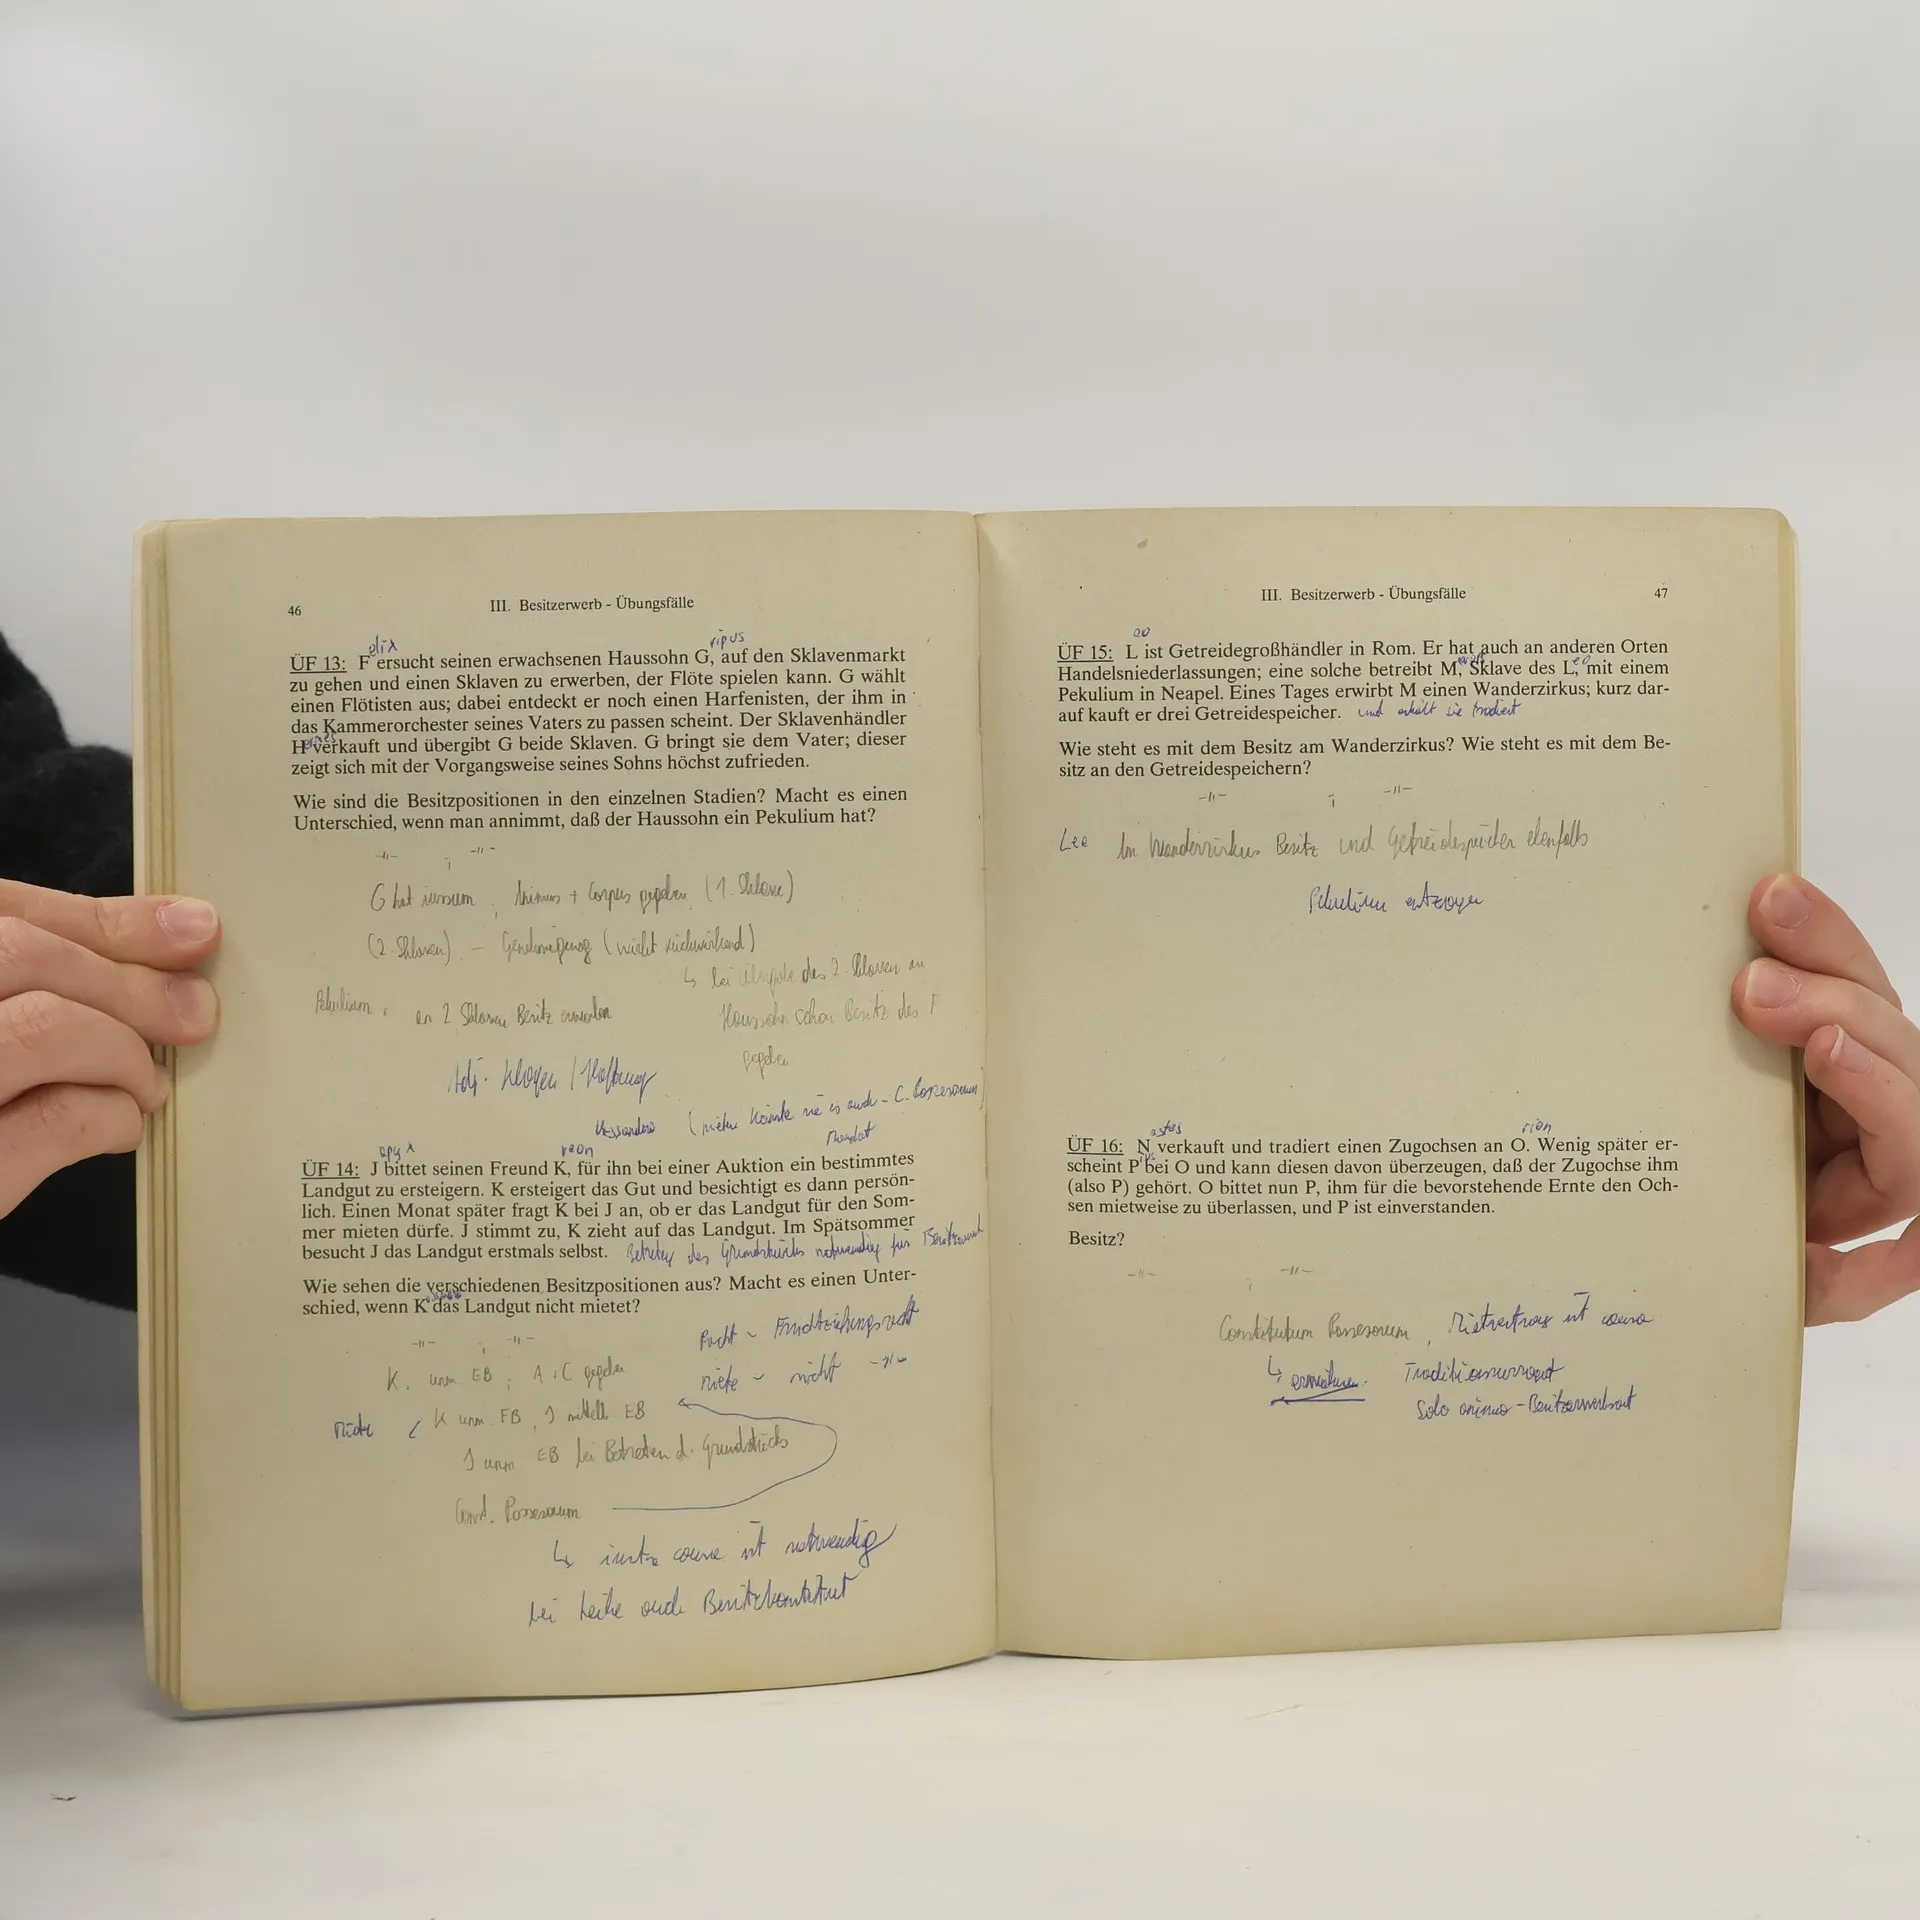 46
III. Besitzerwerb - Übungsfälle
elix
ripus
ÜF 13: F ersucht seinen erwachsenen Haussohn G, auf den Sklavenmarkt
zu gehen und einen Sklaven zu erwerben, der Flöte spielen kann. G wählt
einen Flötisten aus; dabei entdeckt er noch einen Harfenisten, der ihm in
das Kammerorchester seines Vaters zu passen scheint. Der Sklavenhändler
H verkauft und übergibt G beide Sklaven. G bringt sie dem Vater; dieser
zeigt sich mit der Vorgangsweise seines Sohns höchst zufrieden.
Wie sind die Besitzpositionen in den einzelnen Stadien? Macht es einen
Unterschied, wenn man annimmt, daß der Haussohn ein Pekulium hat?
G hat iussum, Animus + Corpus gegeben (1. Sklave)
(2. Sklaven) - Genehmigung (nicht rückwirkend)
↳ bei Übergabe des 2. Sklaven an
Haussohn schon Besitz des F
gegeben
Pekulium: an 2 Sklaven Besitz erworben
Adj. Klagen / Haftung
Mandat
ÜF 14: J bittet seinen Freund K, für ihn bei einer Auktion ein bestimmtes
Landgut zu ersteigern. K ersteigert das Gut und besichtigt es dann persön-
lich. Einen Monat später fragt K bei J an, ob er das Landgut für den Som-
mer mieten dürfe. J stimmt zu, K zieht auf das Landgut. Im Spätsommer
besucht J das Landgut erstmals selbst. Betreten des Grundstücks notwendig für
Wie sehen die verschiedenen Besitzpositionen aus? Macht es einen Unter-
schied, wenn K das Landgut nicht mietet?
Pacht ~ Fruchtziehungsrecht
Miete ~ nicht -"-
K. unm. EB, A + C gegeben
Miete K unm. FB, J mittelb EB
J unm EB bei Betreten d. Grundstücks
Const. Possessorium
↳ iusta causa ist notwendig
bei Leihe auch Besitzkonstitut
III. Besitzerwerb - Übungsfälle
47
eo
ÜF 15: L ist Getreidegroßhändler in Rom. Er hat auch an anderen Orten
Handelsniederlassungen; eine solche betreibt M, Sklave des L, mit einem
Pekulium in Neapel. Eines Tages erwirbt M einen Wanderzirkus; kurz dar-
auf kauft er drei Getreidespeicher. und erhält sie tradiert
Wie steht es mit dem Besitz am Wanderzirkus? Wie steht es mit dem Be-
sitz an den Getreidespeichern?
Leo Am Wanderzirkus Besitz und Getreidespeicher ebenfalls
Pekulium
estos
rion
ÜF 16: N verkauft und tradiert einen Zugochsen an O. Wenig später er-
scheint P bei O und kann diesen davon überzeugen, daß der Zugochse ihm
(also P) gehört. O bittet nun P, ihm für die bevorstehende Ernte den Och-
sen mietweise zu überlassen, und P ist einverstanden.
Besitz?
Constitutum Possessorium, Mietvertrag ist causa
↳ Traditionssurrogat
Solo animo - Besitzerwerbsart